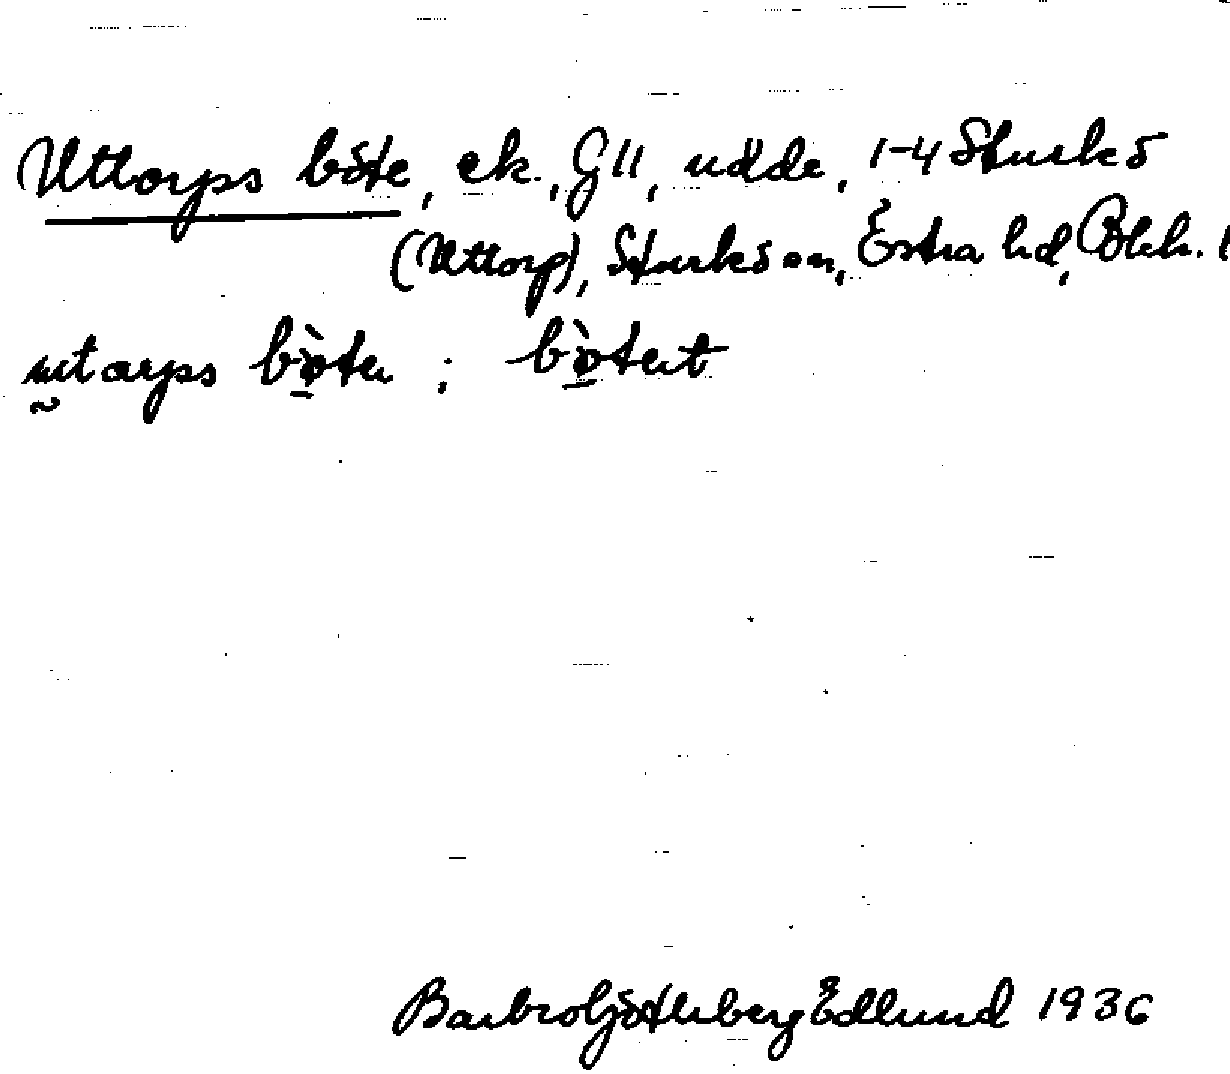 Uttorps böte, ek., G 11, udde, 1-4 Sturkö
(Uttorp), Sturkö sn, Östra hd, Blek. l
utarps bǿte ; bǿtet
Barbro Götherberg Edlund 1936